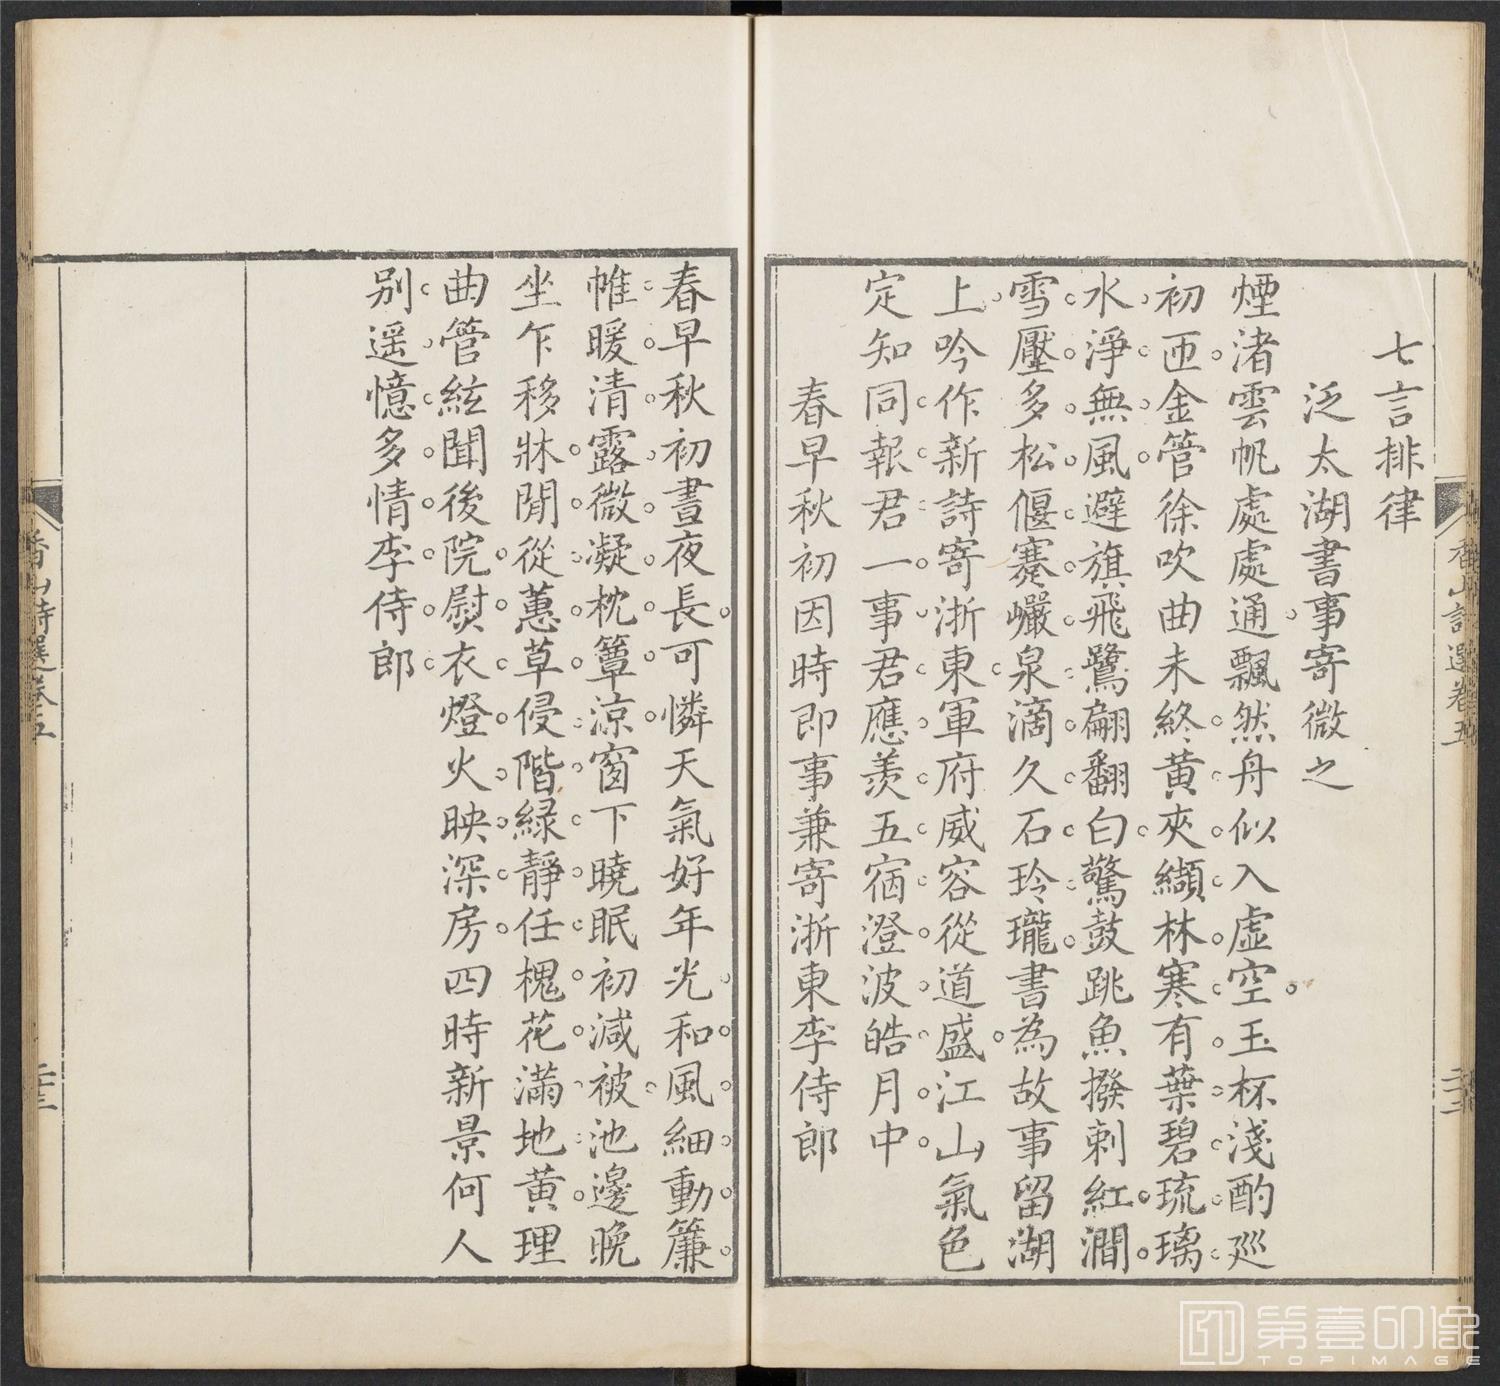 七言排律
泛太湖書事寄微之
煙渚雲帆處處通飄然舟似入虛空玉杯淺酌巡
初匝金管徐吹曲未終黃夾纈林寒有葉碧琉璃
水淨無風避旗飛鷺翩翻白驚鼓跳魚撥剌紅澗
雪壓多松偃蹇巖泉滴久石玲瓏書為故事留湖
上吟作新詩寄浙東軍府威容從道盛江山氣色
定知同報君一事君應羨五宿澄波皓月中
春早秋初因時即事兼寄浙東李侍郎
香山詩選卷五
二十二
春早秋初晝夜長可憐天氣好年光和風細動簾
帷暖清露微凝枕簟涼窗下曉眠初減被池邊晚
坐乍移牀閒從蕙草侵階綠靜任槐花滿地黃理
曲管絃聞後院熨衣燈火映深房四時新景何人
別遥憶多情李侍郎
香山詩選卷五
二十三
第壹印像
TOPIMAGE